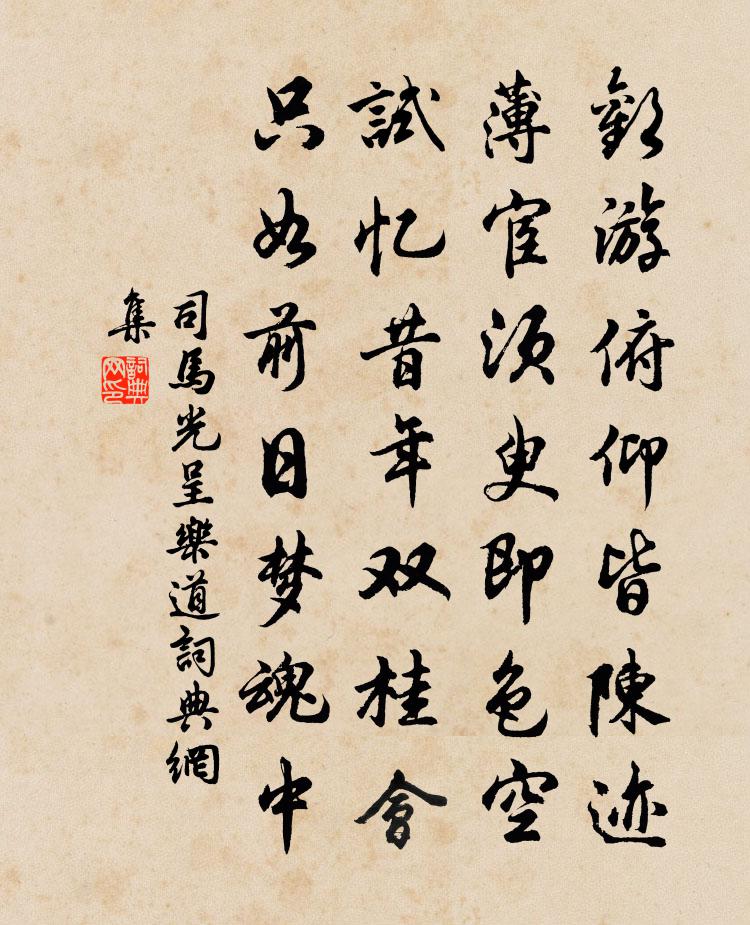 歡游俯仰皆陳迹
薄宦須臾即色空
試忆昔年双桂會
只如前日梦魂中
司馬光呈樂道詞典網
集
詞典网印